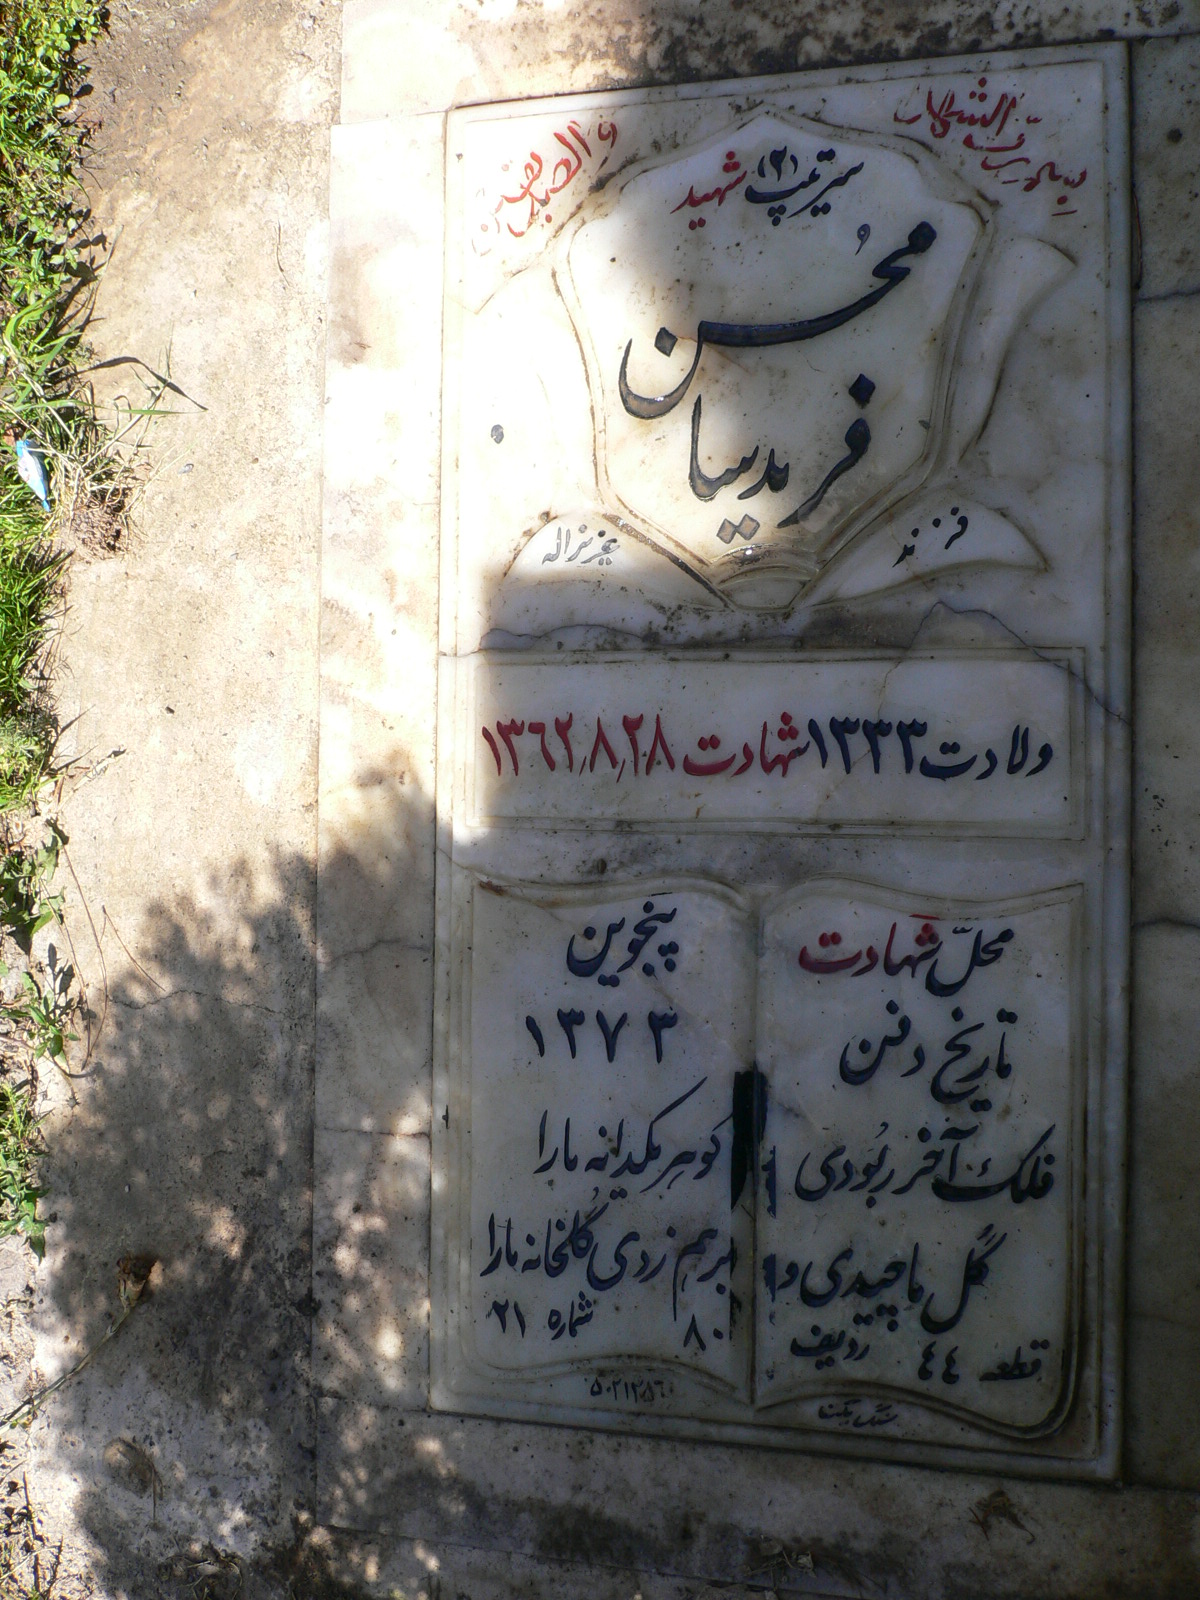 و الصابرین
سرتیپ (۲) شهید
مُحسن
فریدیسا
فرزند عزیزاله
ولادت ۱۳۳۳ شهادت ۱۳۶۲٫۸٫۲۸
محلّ شهادت پنجوین
تاریخ دفن ۱۳۷۳
فلک آخر ربُودی گوهر یکدانه ما را
گُل ما چیدی و برهم زدی گُلخانه ما را
قطعه ٤٤ ردیف ۸۰ شماره ۲۱
سنگ یکتا